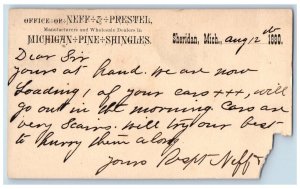 OFFICE OF NEFF & PRESTEL,
Manufacturers and Wholesale Dealers in
MICHIGAN PINE SHINGLES.
Sheridan, Mich., Aug 12th 1880.
Dear Sir
yours at hand. We are now
Loading 1 of your cars +++, will
go out in the morning. Cars are
very Scairs. Will try our best
to hurry them along
yours Respt Neff &